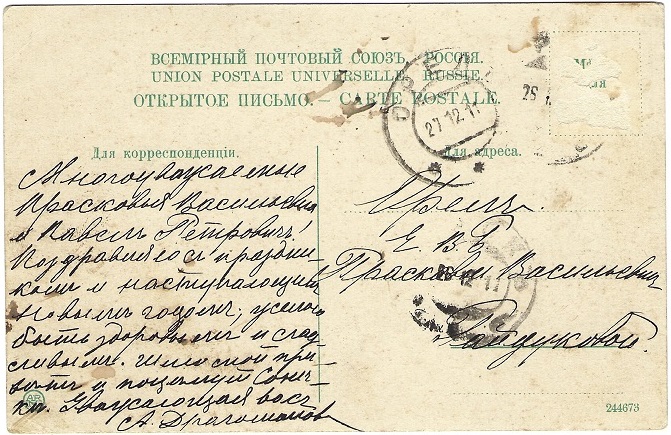 ВСЕМІРНЫЙ ПОЧТОВЫЙ СОЮЗЪ. РОССІЯ.
UNION POSTALE UNIVERSELLE. RUSSIE.
ОТКРЫТОЕ ПИСЬМО. — CARTE POSTALE.
ОРЕЛ
27.12.11
Для корреспонденціи.
Многоуважаемые
Прасковья Васильевна
и Павелъ Петровичъ!
Поздравляю съ праздни-
комъ и наступающимъ
новымъ годомъ, желаю
быть здоровыми и сча-
стливыми. Шлю мой при-
вѣтъ и поцелуй
Уважающая васъ
А. Драгоманова
Для адреса.
Орелъ
Е. В. Б.
Прасковьи Васильевнѣ
Гайдуковой.
26.12.11
244673